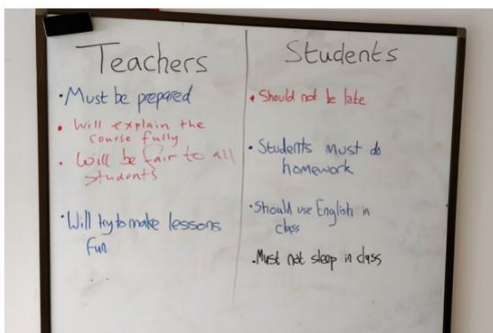 Teachers
• Must be prepared
• Will explain the
course fully
• Will be fair to all
students
• Will try to make lessons
fun
Students
• Should not be late
• Students must do
homework
• Should use English in
class
• Must not sleep in class